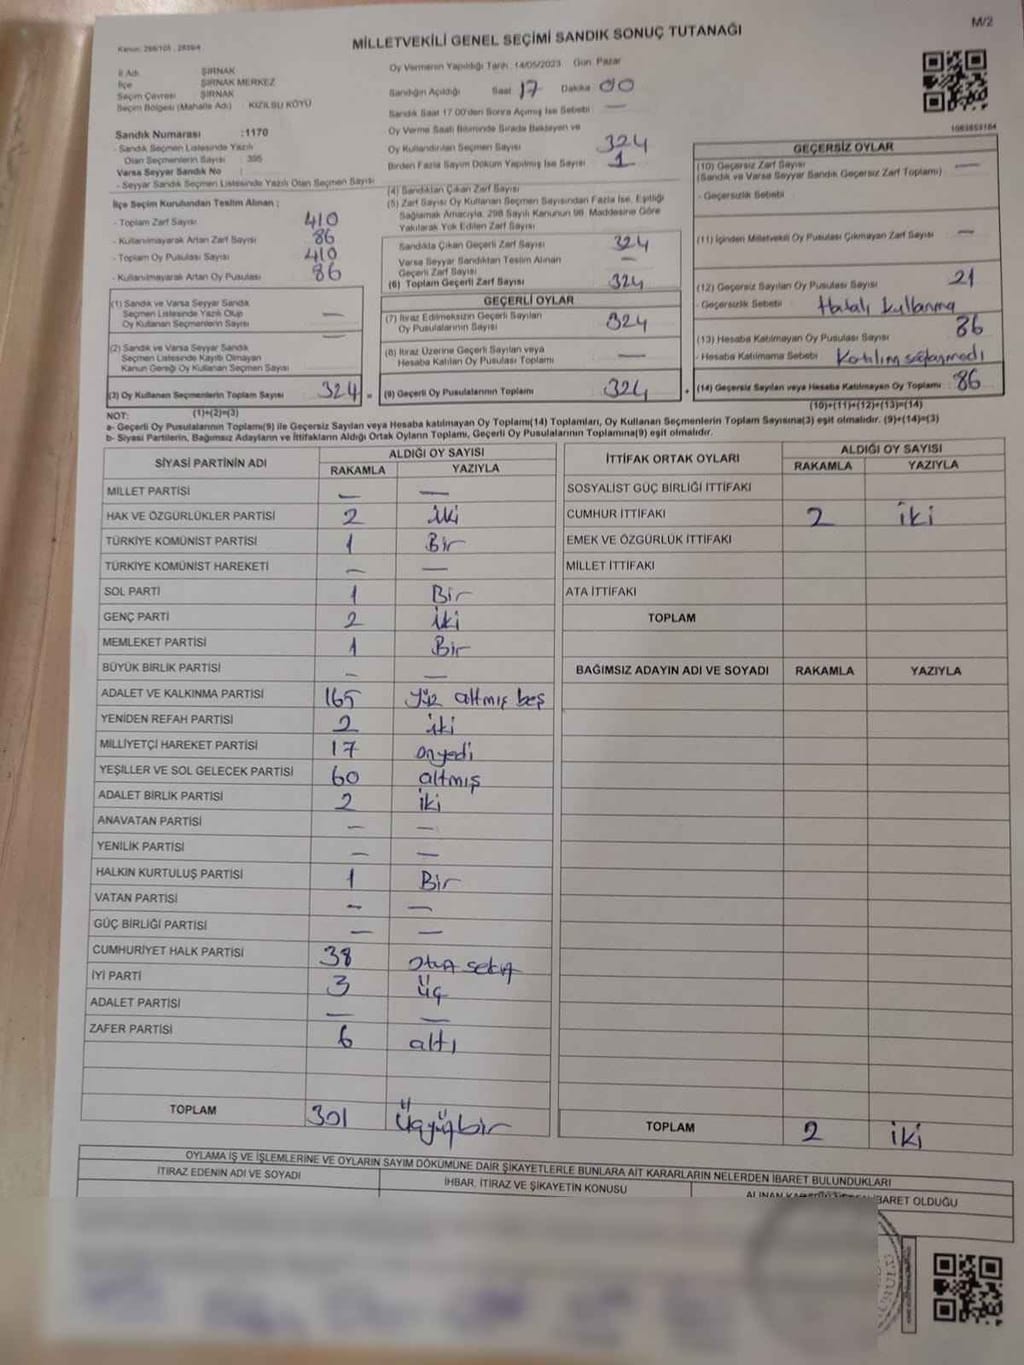 M/2
Kanun: 298/105 , 2839/4
MİLLETVEKİLİ GENEL SEÇİMİ SANDIK SONUÇ TUTANAĞI
İl Adı ŞIRNAK
İlçe ŞIRNAK MERKEZ
Seçim Çevresi ŞIRNAK
Seçim Bölgesi (Mahalle Adı) KIZILSU KÖYÜ
Sandık Numarası :1170
- Sandık Seçmen Listesinde Yazılı
Olan Seçmenlerin Sayısı : 395
Varsa Seyyar Sandık No
- Seyyar Sandık Seçmen Listesinde Yazılı Olan Seçmen Sayısı
İlçe Seçim Kurulundan Teslim Alınan ;
- Toplam Zarf Sayısı 410
- Kullanılmayarak Artan Zarf Sayısı 86
- Toplam Oy Pusulası Sayısı 410
- Kullanılmayarak Artan Oy Pusulası 86
(1) Sandık ve Varsa Seyyar Sandık
Seçmen Listesinde Yazılı Olup
Oy Kullanan Seçmenlerin Sayısı —
(2) Sandık ve Varsa Seyyar Sandık
Seçmen Listesinde Kayıtlı Olmayan
Kanun Gereği Oy Kullanan Seçmen Sayısı —
(3) Oy Kullanan Seçmenlerin Toplam Sayısı 324 =
Oy Vermenin Yapıldığı Tarih : 14/05/2023 Gün: Pazar
Sandığın Açıldığı Saat 17 Dakika 00
Sandık Saat 17.00'den Sonra Açılmış İse Sebebi : —
Oy Verme Saati Bitiminde Sırada Bekleyen ve
Oy Kullandırılan Seçmen Sayısı 324
Birden Fazla Sayım Döküm Yapılmış İse Sayısı 1
(4) Sandıktan Çıkan Zarf Sayısı
(5) Zarf Sayısı Oy Kullanan Seçmen Sayısından Fazla İse, Eşitliği
Sağlamak Amacıyla, 298 Sayılı Kanunun 98. Maddesine Göre
Yakılarak Yok Edilen Zarf Sayısı
Sandıkta Çıkan Geçerli Zarf Sayısı 324
Varsa Seyyar Sandıktan Teslim Alınan
Geçerli Zarf Sayısı —
(6) Toplam Geçerli Zarf Sayısı 324
GEÇERLİ OYLAR
(7) İtiraz Edilmeksizin Geçerli Sayılan
Oy Pusulalarının Sayısı 324
(8) İtiraz Üzerine Geçerli Sayılan veya
Hesaba Katılan Oy Pusulası Toplamı —
(9) Geçerli Oy Pusulalarının Toplamı 324 +
1083853184
GEÇERSİZ OYLAR
(10) Geçersiz Zarf Sayısı —
(Sandık ve Varsa Seyyar Sandık Geçersiz Zarf Toplamı)
- Geçersizlik Sebebi
(11) İçinden Milletvekili Oy Pusulası Çıkmayan Zarf Sayısı —
(12) Geçersiz Sayılan Oy Pusulası Sayısı 21
- Geçersizlik Sebebi Hatalı kullanma
(13) Hesaba Katılmayan Oy Pusulası Sayısı 86
- Hesaba Katılmama Sebebi Katılım sağlanmadı
(14) Geçersiz Sayılan veya Hesaba Katılmayan Oy Toplamı 86
NOT: (1)+(2)=(3) (10)+(11)+(12)+(13)=(14)
a- Geçerli Oy Pusulalarının Toplamı(9) ile Geçersiz Sayılan veya Hesaba katılmayan Oy Toplamı(14) Toplamları, Oy Kullanan Seçmenlerin Toplam Sayısına(3) eşit olmalıdır. (9)+(14)=(3)
b- Siyasi Partilerin, Bağımsız Adayların ve İttifakların Aldığı Ortak Oyların Toplamı, Geçerli Oy Pusulalarının Toplamına(9) eşit olmalıdır.
SİYASİ PARTİNİN ADI ALDIĞI OY SAYISI
RAKAMLA YAZIYLA
MİLLET PARTİSİ — —
HAK VE ÖZGÜRLÜKLER PARTİSİ 2 iki
TÜRKİYE KOMÜNİST PARTİSİ 1 Bir
TÜRKİYE KOMÜNİST HAREKETİ — —
SOL PARTİ 1 Bir
GENÇ PARTİ 2 iki
MEMLEKET PARTİSİ 1 Bir
BÜYÜK BİRLİK PARTİSİ — —
ADALET VE KALKINMA PARTİSİ 165 yüz altmış beş
YENİDEN REFAH PARTİSİ 2 iki
MİLLİYETÇİ HAREKET PARTİSİ 17 onyedi
YEŞİLLER VE SOL GELECEK PARTİSİ 60 altmış
ADALET BİRLİK PARTİSİ 2 iki
ANAVATAN PARTİSİ — —
YENİLİK PARTİSİ — —
HALKIN KURTULUŞ PARTİSİ 1 Bir
VATAN PARTİSİ — —
GÜÇ BİRLİĞİ PARTİSİ — —
CUMHURİYET HALK PARTİSİ 38 otuz sekiz
İYİ PARTİ 3 üç
ADALET PARTİSİ — —
ZAFER PARTİSİ 6 altı
TOPLAM 301 üçyüzbir
İTTİFAK ORTAK OYLARI ALDIĞI OY SAYISI
RAKAMLA YAZIYLA
SOSYALİST GÜÇ BİRLİĞİ İTTİFAKI
CUMHUR İTTİFAKI 2 iki
EMEK VE ÖZGÜRLÜK İTTİFAKI
MİLLET İTTİFAKI
ATA İTTİFAKI
TOPLAM
BAĞIMSIZ ADAYIN ADI VE SOYADI RAKAMLA YAZIYLA
TOPLAM 2 iki
OYLAMA İŞ VE İŞLEMLERİNE VE OYLARIN SAYIM DÖKÜMÜNE DAİR ŞİKAYETLERLE BUNLARA AİT KARARLARIN NELERDEN İBARET BULUNDUKLARI
İTİRAZ EDENİN ADI VE SOYADI İHBAR, İTİRAZ VE ŞİKAYETİN KONUSU İBARET OLDUĞU